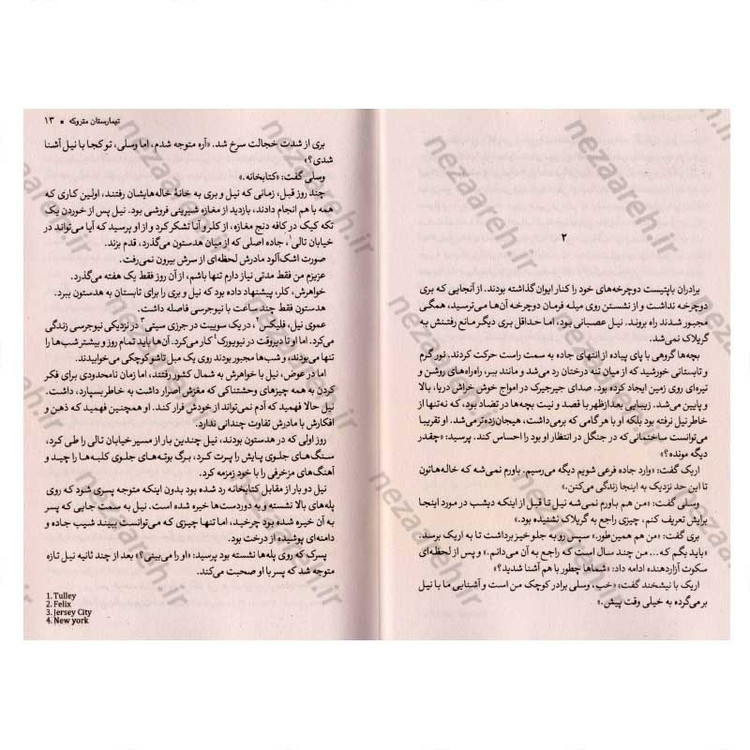 ۲
برادران باپتیست دوچرخه‌های خود را کنار ایوان گذاشته بودند. از آنجایی که بری
دوچرخه نداشت و از نشستن روی میله فرمان دوچرخه آن‌ها می‌ترسید، همگی
مجبور شدند راه بروند. نیل عصبانی بود، اما حداقل بری دیگر مانع رفتنش به
گریلاک نمی‌شد.
بچه‌ها گروهی با پای پیاده از انتهای جاده به سمت راست حرکت کردند. نور گرم
و تابستانی خورشید که از میان تنه درختان رد می‌شد و مانند ببر، راه‌راه‌های روشن و
تیره‌ای روی زمین ایجاد کرده بود. صدای جیرجیرک در امواج خوش خراش دریا، بالا
و پایین می‌شد. زیبایی بعدازظهر با قصد و نیت بچه‌ها در تضاد بود، که نه‌تنها از
خاطر نیل نرفته بود بلکه او با هر گامی که برمی‌داشت، هیجان‌زده‌تر می‌شد. او تقریبا
می‌توانست ساختمانی که در جنگل در انتظار او بود را احساس کند. پرسید: «چقدر
دیگه مونده؟»
اریک گفت: «وارد جاده فرعی شویم دیگه می‌رسیم. باورم نمی‌شه که خاله‌هاتون
تا این حد نزدیک به اینجا زندگی می‌کنن.»
وسلی گفت: «من هم باورم نمی‌شه نیل تا قبل از اینکه دیشب در مورد اینجا
برایش تعریف کنم، چیزی راجع به گریلاک نشنیده بود.»
بری گفت: «من هم همین‌طور.» سپس رو به جلو خیز برداشت تا به اریک برسد.
«باید بگم که... من چند سال است که راجع به آن می‌دانم.» و پس از لحظه‌ای
سکوت آزاردهنده ادامه داد: «شماها چطور با هم آشنا شدید؟»
اریک با نیشخند گفت: «خب، وسلی برادر کوچک من است و آشنایی ما با نیل
بر می‌گرده به خیلی وقت پیش.»
تیمارستان متروکه ● ۱۳
بری از شدت خجالت سرخ شد. «آره متوجه شدم، اما وسلی، تو کجا با نیل آشنا
شدی؟»
وسلی گفت: «کتابخانه.»
چند روز قبل، زمانی که نیل و بری به خانهٔ خاله‌هایشان رفتند، اولین کاری که
همه با هم انجام دادند، بازدید از مغازه شیرینی فروشی بود. نیل پس از خوردن یک
تکه کیک در کافه دنج مغازه، از کلر و آنا تشکر کرد و از او پرسید که آیا می‌تواند در
خیابان تالی۱، جاده اصلی که از میان هدستون می‌گذرد، قدم بزند.
صورت اشک‌آلود مادرش لحظه‌ای از سرش بیرون نمی‌رفت.
عزیزم من فقط مدتی نیاز دارم تنها باشم، از آن روز فقط یک هفته می‌گذرد.
خواهرش، کلر، پیشنهاد داده بود که نیل و بری را برای تابستان به هدستون ببرد.
هدستون فقط چند ساعت با نیوجرسی فاصله داشت.
عموی نیل، فلیکس۲، در یک سوییت در جرزی سیتی۳ در نزدیکی نیوجرسی زندگی
می‌کرد. اما او تا دیروقت در نیویورک۴ کار می‌کرد. آن‌ها باید تمام روز و بیشتر شب‌ها را
تنها می‌بودند، و شب‌ها مجبور بودند روی یک مبل تاشو کوچکی می‌خوابیدند.
اما در عوض، نیل با خواهرش به شمال کشور رفتند، اما زمان نامحدودی برای فکر
کردن به همه چیزهای وحشتناکی که مغزش اصرار داشت به خاطر بسپارد، داشت.
نیل حالا فهمید که آدم نمی‌تواند از خودش فرار کند. او همچنین فهمید که ذهن و
افکارش با مادرش تفاوت چندانی ندارد.
روز اولی که در هدستون بودند، نیل چندین بار از مسیر خیابان تالی را طی کرد،
سنگ‌های جلوی پایش را پرت کرد، برگ بوته‌های جلوی کلبه‌ها را چید و
آهنگ‌های مزخرفی را با خود زمزمه کرد.
نیل دو بار از مقابل کتابخانه رد شده بود بدون اینکه متوجه پسری شود که روی
پله‌های بالا نشسته و به دوردست‌ها خیره شده است. نیل به سمت جایی که پسر
به آن خیره شده بود چرخید، اما تنها چیزی که می‌توانست ببیند شیب جاده و
دامنه‌ای پوشیده از درخت بود.
پسرک که روی پله‌ها نشسته بود پرسید: «او را می‌بینی؟» بعد از چند ثانیه نیل تازه
متوجه شد که پسر با او صحبت می‌کند.
1. Tulley
2. Felix
3. Jersey City
4. New york
nezaareh.ir